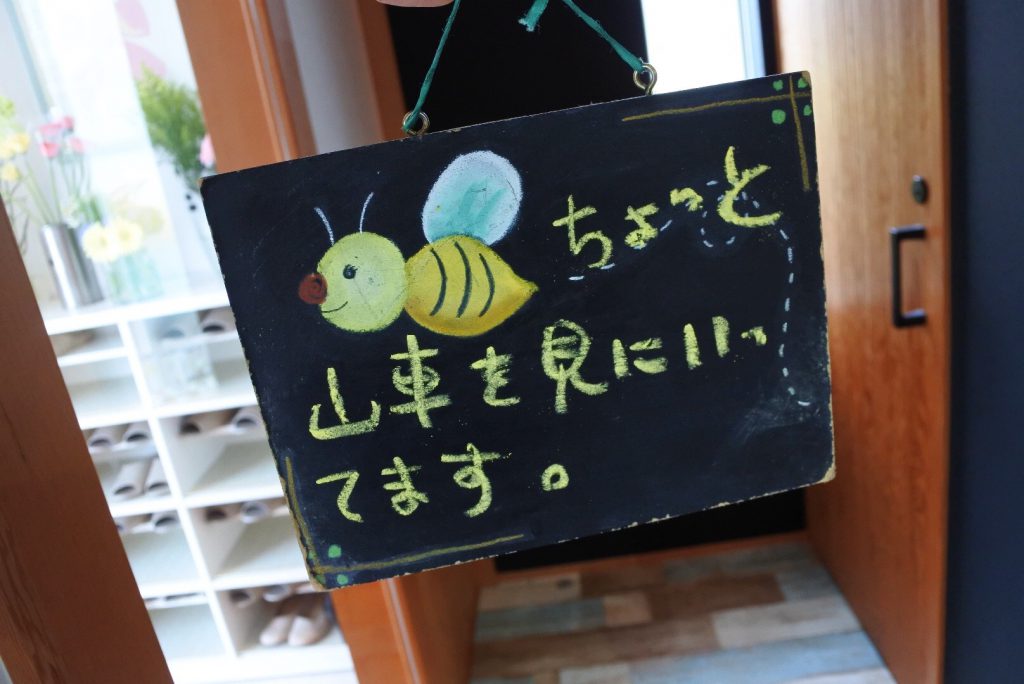 ちょっと
山車を見にいっ
てます。